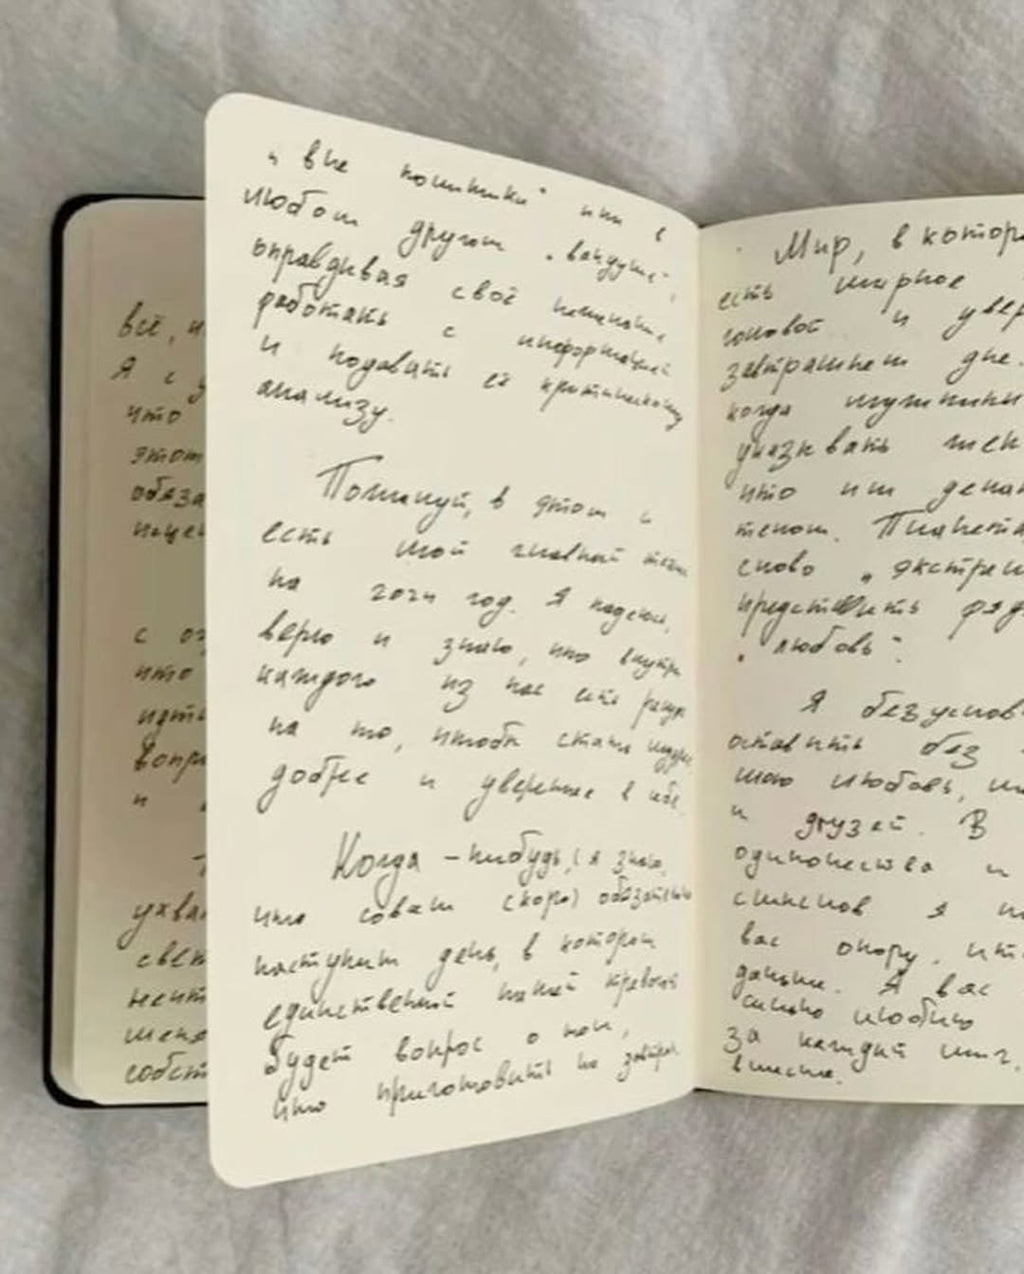 всё, и
Я с у
что
этот
обяза
ицел
с ог
что
идти
вопр
и
ухва
свет
мент
меня
собст
„вне политики“ или в
любом другом „вакууме“,
оправдывая своё нежелание
работать с информацией
и подавать её критическому
анализу.
Пожалуй, в этом и
есть мой главный
на 2024 год. Я надеюсь,
верю и знаю, что внутри
каждого из нас есть ресурс
на то, чтобы стать мудрее,
добрее и увереннее в себе.
Когда-нибудь (я знаю,
что совсем скоро) обязательно
наступит день, в котором
единственной нашей тревогой
будет вопрос о том,
что приготовить на завтрак.
Мир, в котор
есть мирное
головой и увер
завтрашнем дне.
когда мужчины
указывать жен
что им делат
телом. Планета
слово „экстрем
представить ряд
„любовь“.
Я безуслов
оставить без
мою любовь,
и друзей. В
одиночества и
смыслов я
вас опору, чт
дальше. Я вас
сильно люблю
за каждый миг,
вместе.